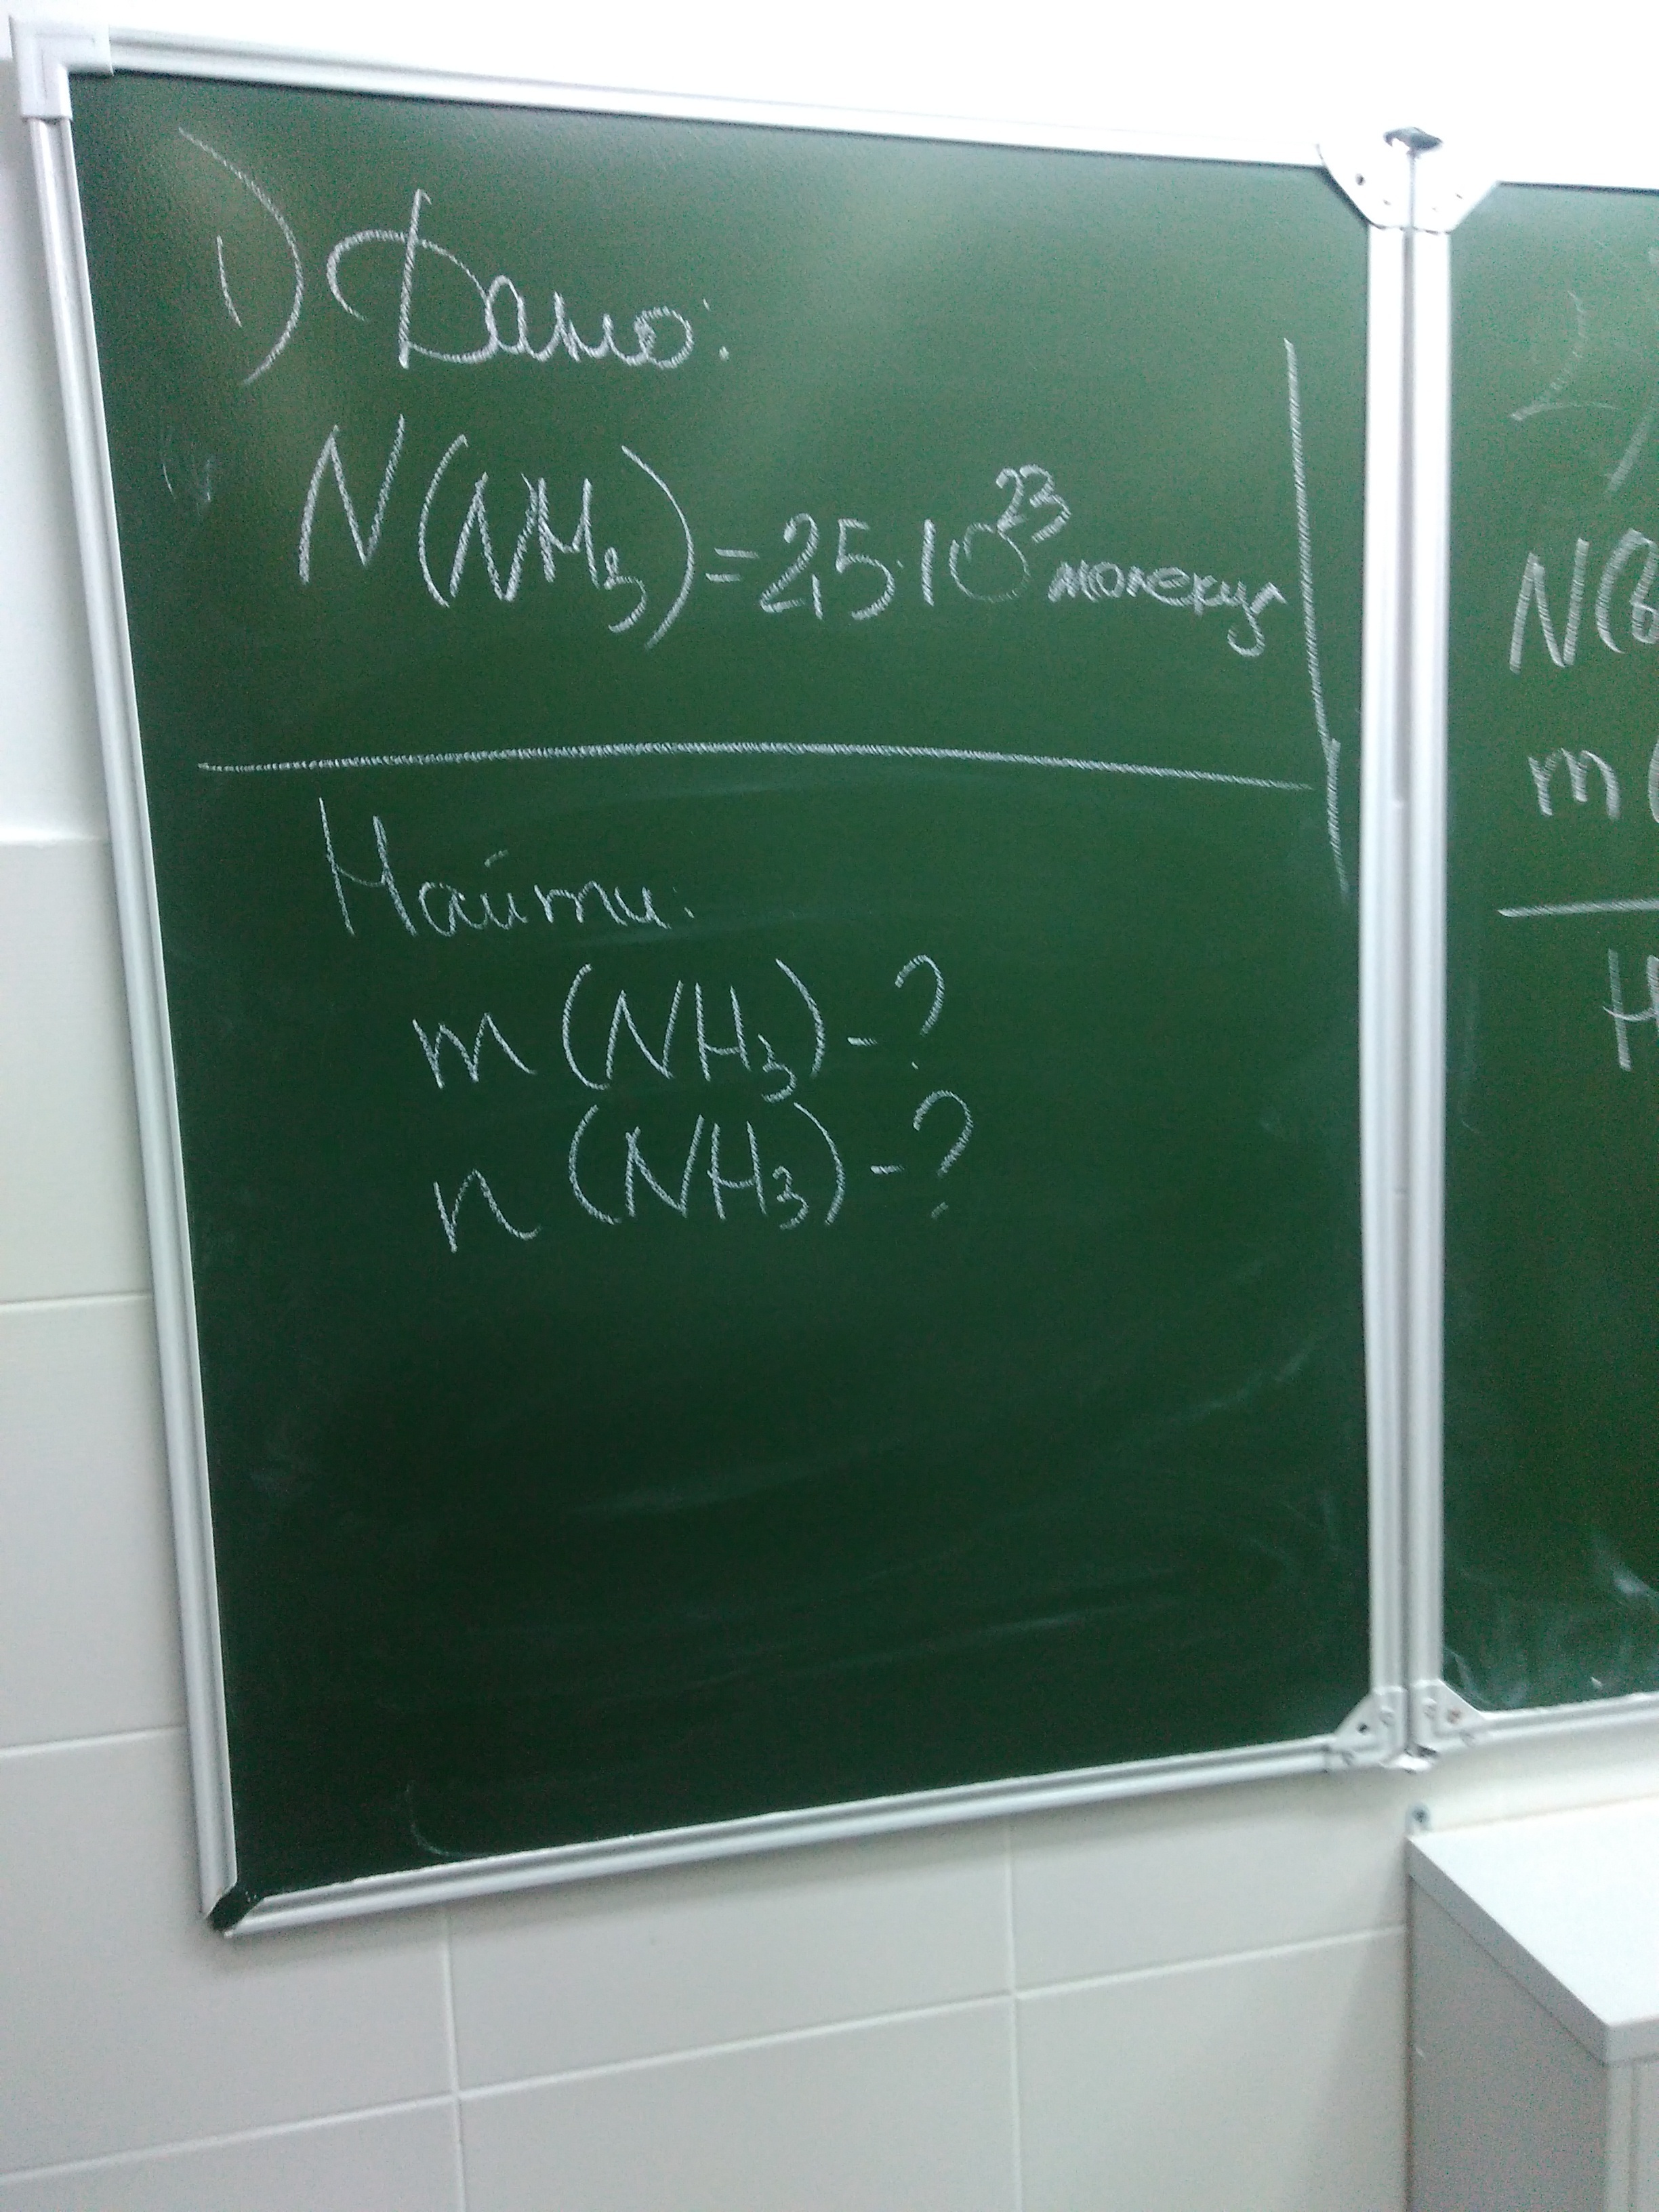 1) Дано:
N(NH₃)=2,5·10²³ молекул
Найти:
m(NH₃)-?
n(NH₃)-?
2)
N(
m(
Н